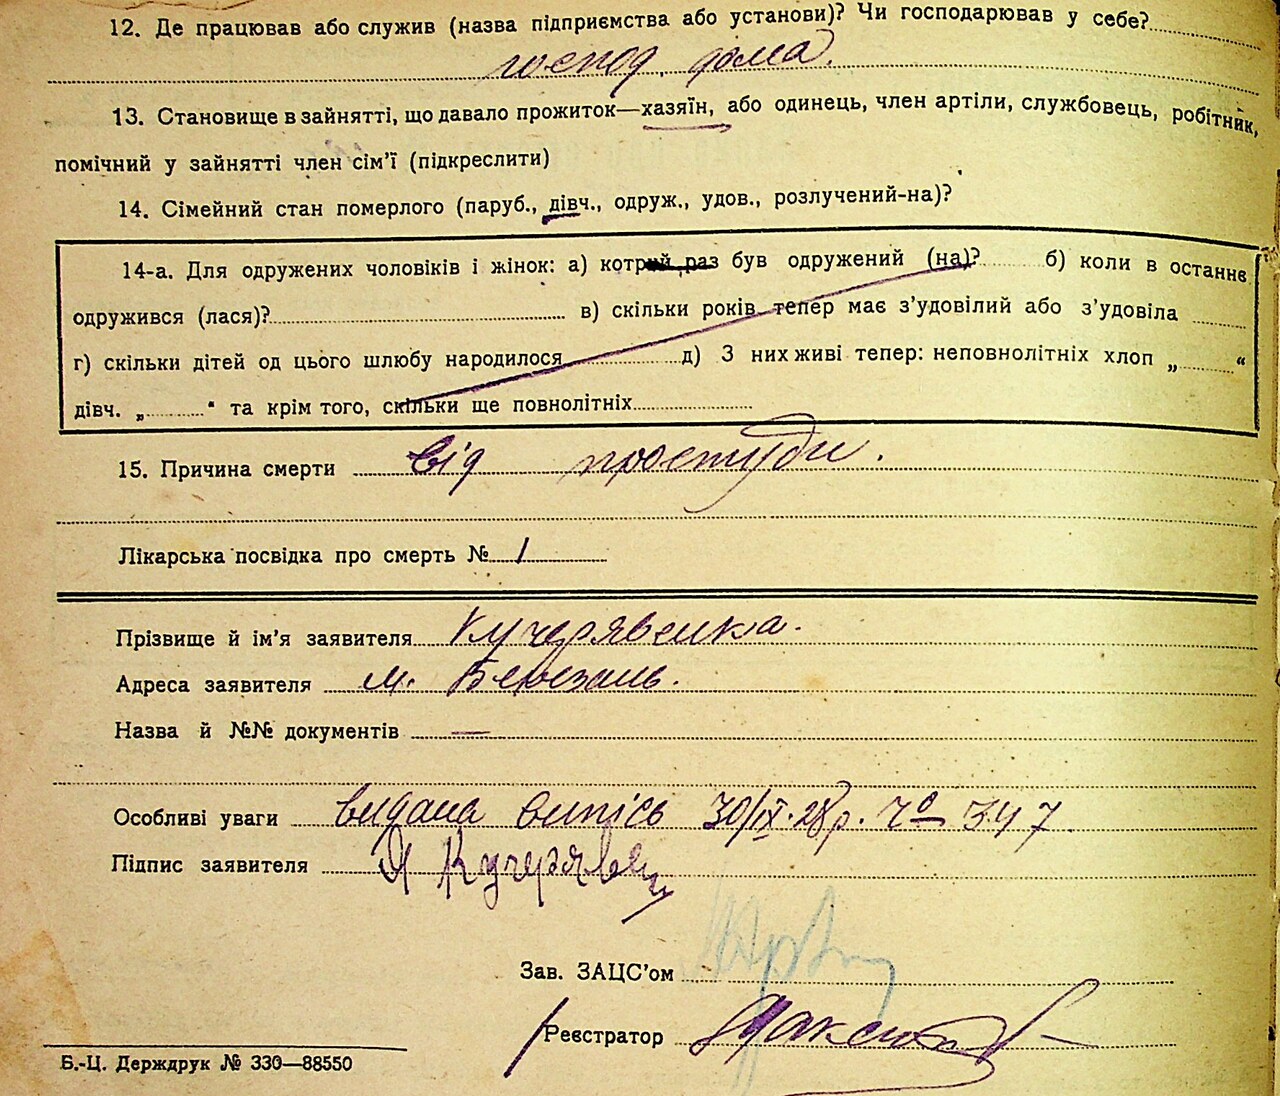 12. Де працював або служив (назва підприємства або установи)? Чи господарював у себе?
господ. дома.
13. Становище в зайнятті, що давало прожиток—хазяїн, або одинець, член артіли, службовець, робітник,
помічний у зайнятті член сім’ї (підкреслити)
14. Сімейний стан померлого (паруб., дівч., одруж., удов., розлучений-на)?
14-а. Для одружених чоловіків і жінок: а) котрий раз був одружений (на)? б) коли в останнє
одружився (лася)? в) скільки років тепер має з’удовілий або з’удовіла
г) скільки дітей од цього шлюбу народилося д) З них живі тепер: неповнолітніх хлоп „ “
дівч. „ “ та крім того, скільки ще повнолітніх
15. Причина смерти від простуди.
Лікарська посвідка про смерть № 1
Прізвище й ім’я заявителя Кучерявенка.
Адреса заявителя м. Березань.
Назва й №№ документів —
Особливі уваги видана випісь 30/IX.28р. Ч 347
Підпис заявителя Я Кучерявен
Зав. ЗАЦС’ом
Реєстратор
Б.-Ц. Держдрук № 330—88550